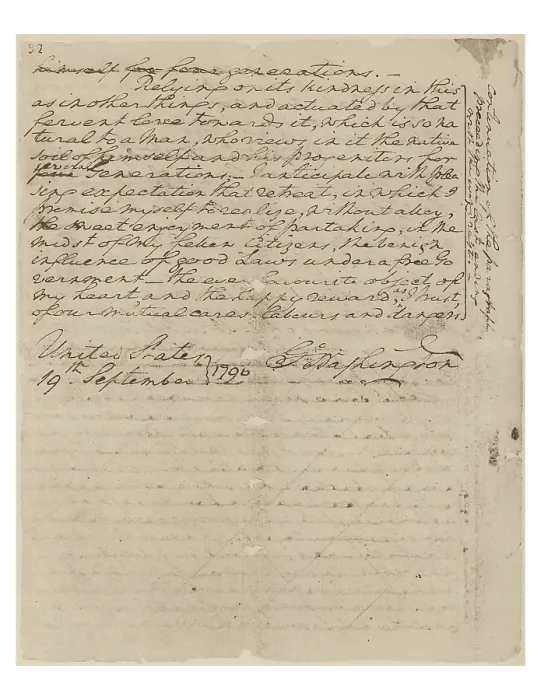 32
himself for four generations. —
Relying on its kindness in this
as in other things, and actuated by that
fervent love towards it, which is so na
tural to a Man, who views in it the native
soil of himself and his progenitors for
several
four Generations; — I anticipate with plea
sing expectation that retreat, in which I
promise myself to realize, without alloy,
the sweet enjoyment of partaking, in the
midst of my fellow Citizens, the benign
influence of good Laws under a free Go
vernment — the ever favourite object of
my heart, and the happy reward, as I trust,
of our mutual cares, labours and dangers
United States
19th September } 1796
Go Washington
continuation of the paragraph
preceding the last ending
with the word